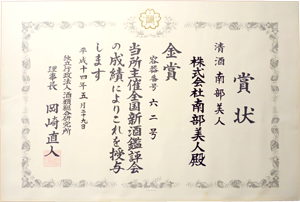 賞状
清酒 南部美人
株式会社南部美人殿
金賞
容器番号 六二号
当所主催全国新酒鑑評会
の成績によりこれを授与
します
平成十四年五月二十九日
独立行政法人酒類総合研究所
理事長 岡崎直人